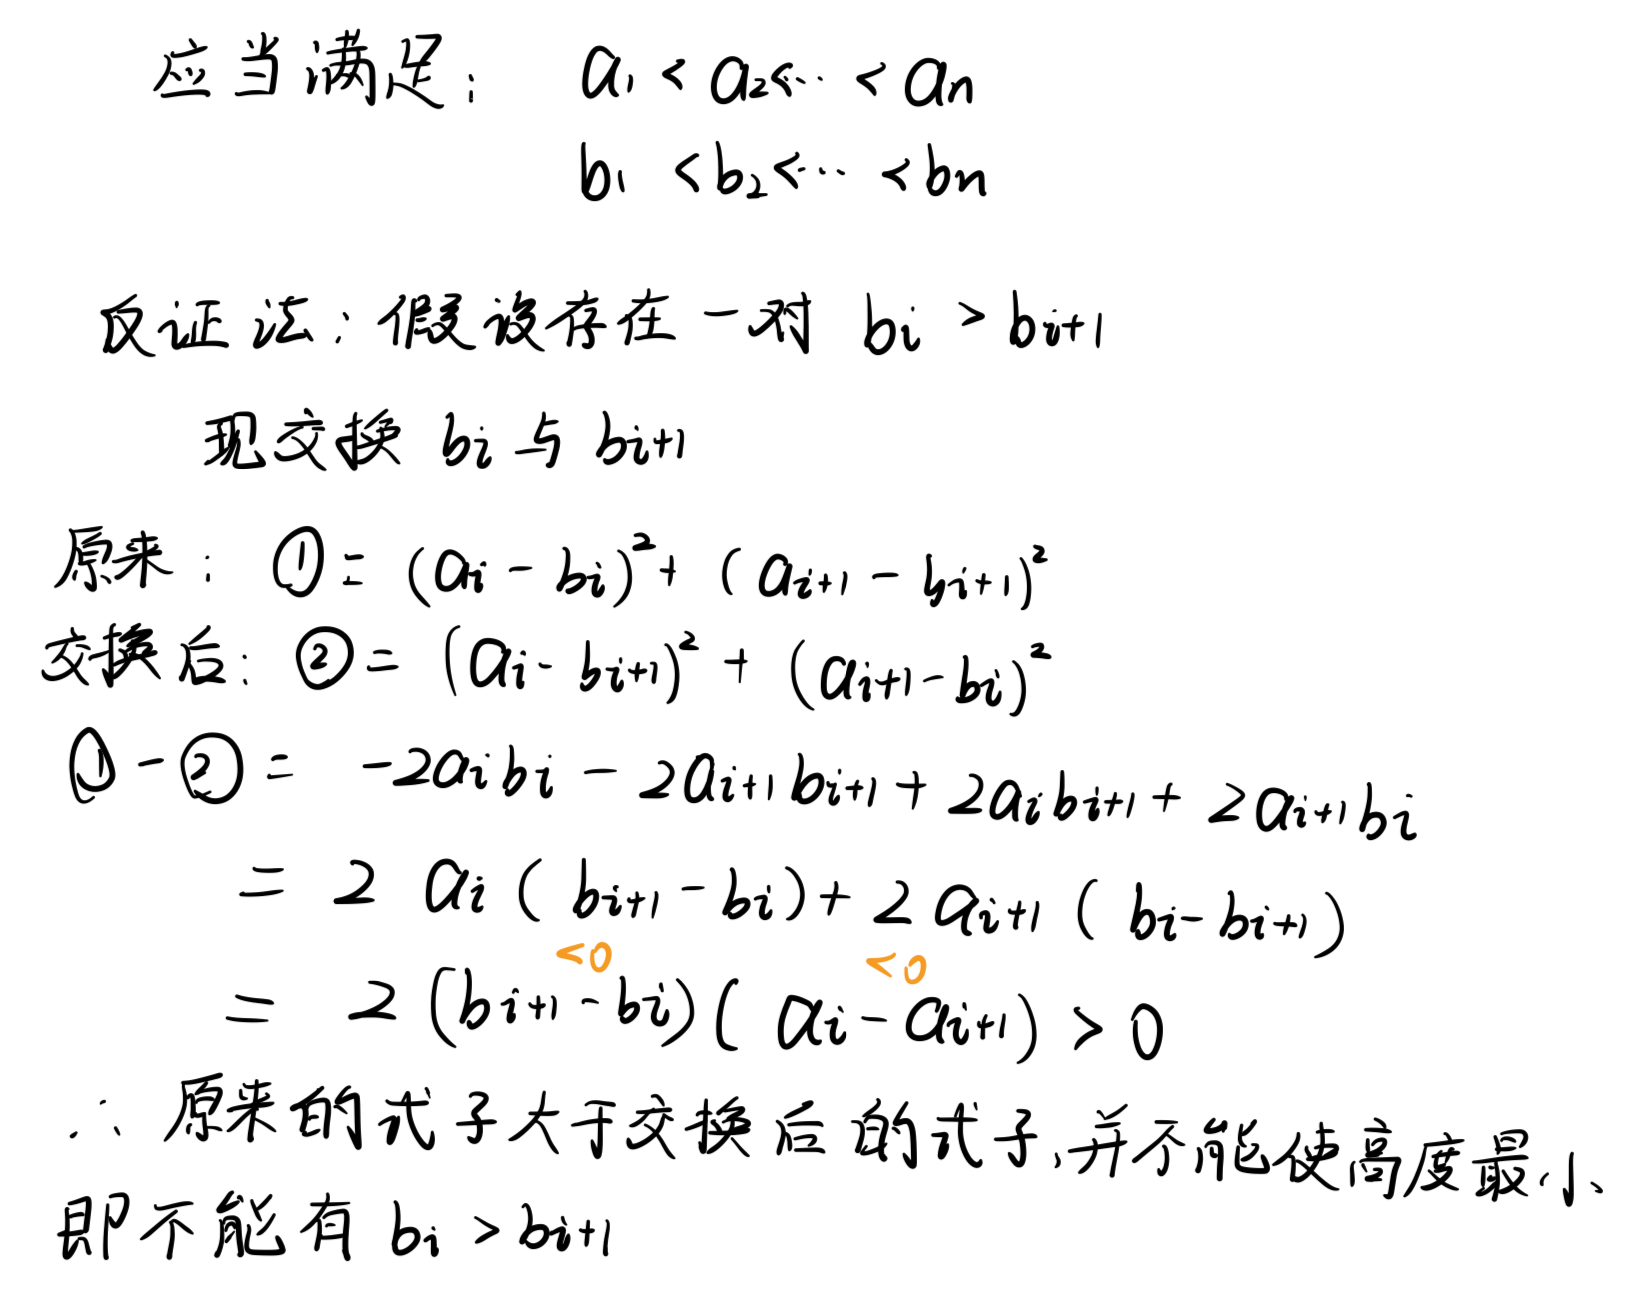 应当满足: a₁ < a₂<… < aₙ
b₁ < b₂<… < bₙ
反证法: 假设存在一对 bᵢ > bᵢ₊₁
现交换 bᵢ 与 bᵢ₊₁
原来: ① = (aᵢ - bᵢ)² + (aᵢ₊₁ - bᵢ₊₁)²
交换后: ② = (aᵢ - bᵢ₊₁)² + (aᵢ₊₁ - bᵢ)²
① - ② = -2aᵢbᵢ - 2aᵢ₊₁bᵢ₊₁ + 2aᵢbᵢ₊₁ + 2aᵢ₊₁bᵢ
= 2 aᵢ (bᵢ₊₁ - bᵢ) + 2 aᵢ₊₁ (bᵢ - bᵢ₊₁)
<0 <0
= 2 (bᵢ₊₁ - bᵢ)(aᵢ - aᵢ₊₁) > 0
∴ 原来的式子大于交换后的式子,并不能使高度最小、
即不能有 bᵢ > bᵢ₊₁